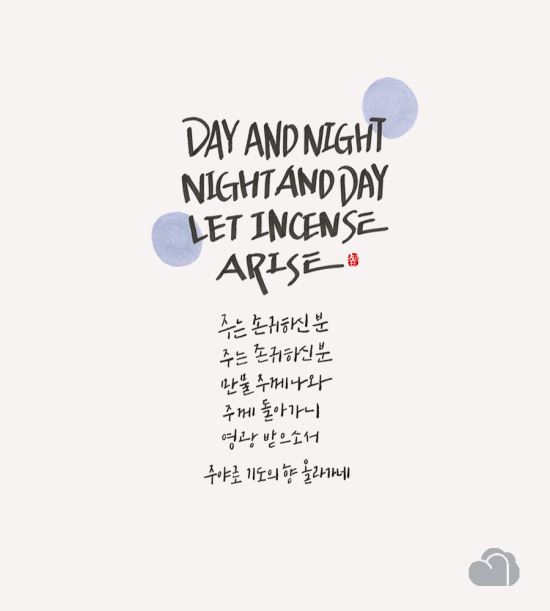 DAY AND NIGHT
NIGHT AND DAY
LET INCENSE
ARISE
주는 존귀하신 분
주는 존귀하신 분
만물 주께 나와
주께 돌아가니
영광 받으소서
주야로 기도의 향 올라가네